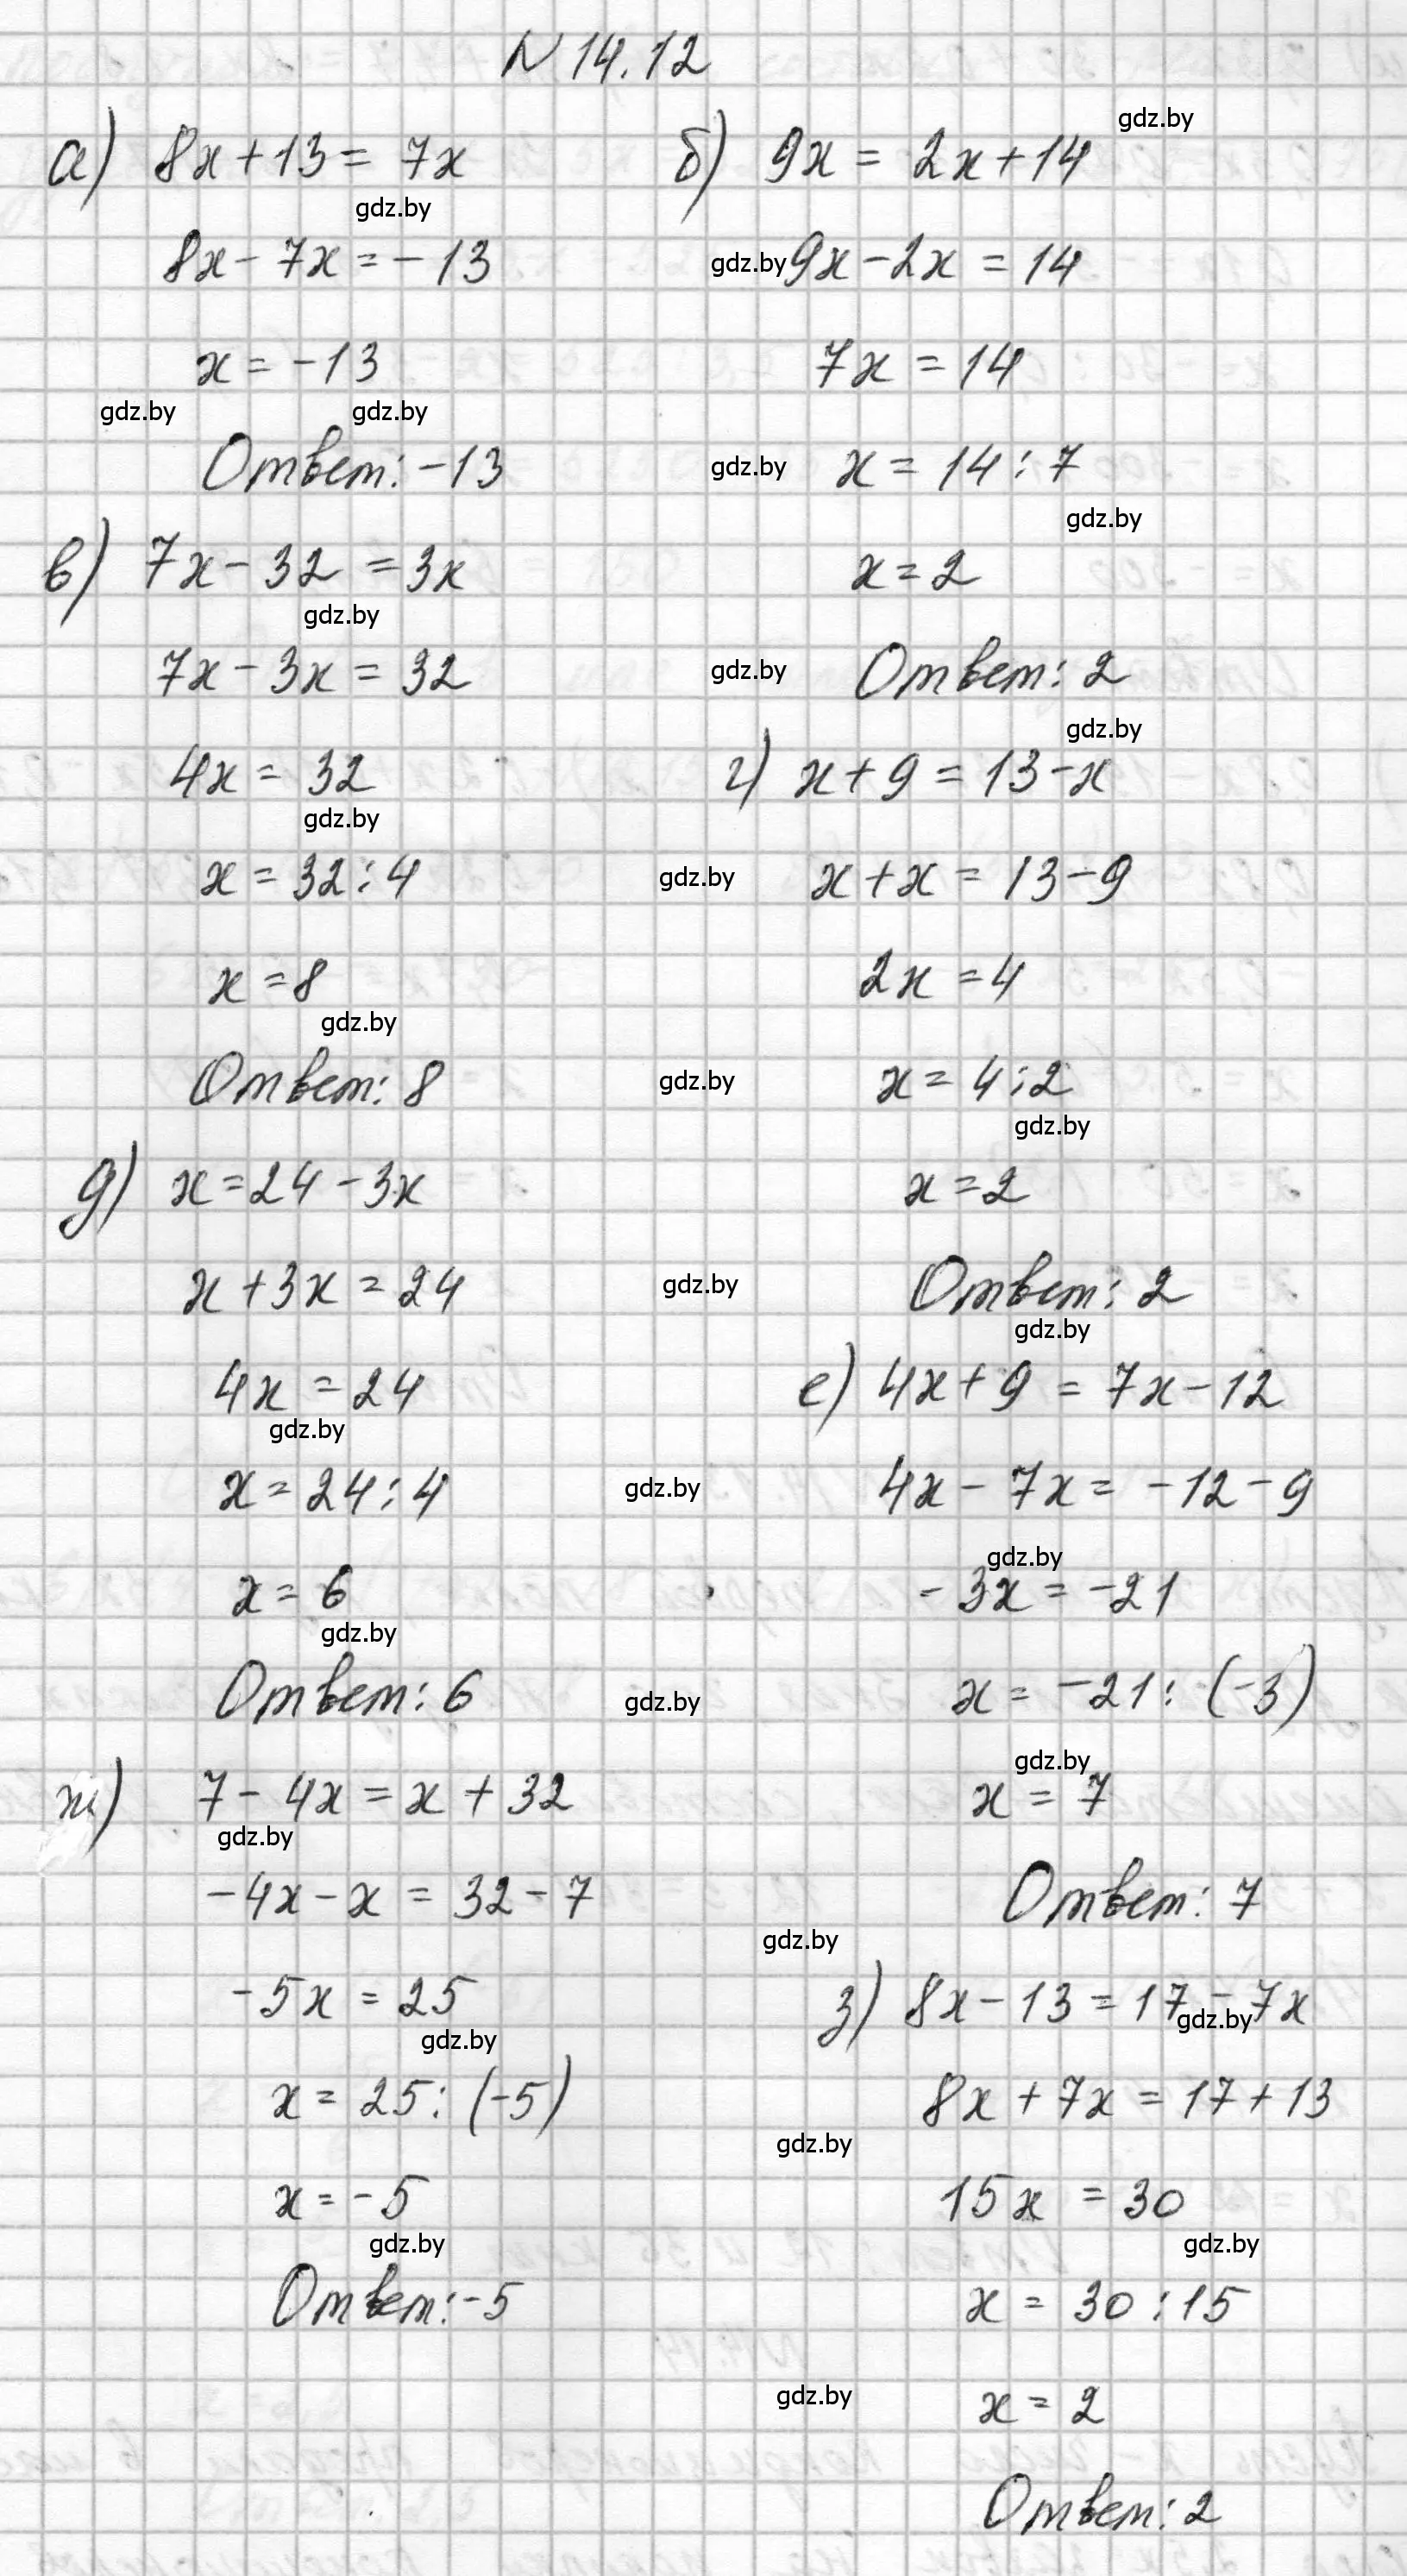 N 14.12
а) 8x + 13 = 7x
gdz.by
8x - 7x = - 13
x = - 13
gdz.by gdz.by
Ответ: - 13
в) 7x - 32 = 3x
gdz.by
7x - 3x = 32
4x = 32
gdz.by
x = 32 : 4
x = 8
gdz.by
Ответ: 8
д) x = 24 - 3x
x + 3x = 24
4x = 24
gdz.by
x = 24 : 4
x = 6
gdz.by
Ответ: 6
ж) 7 - 4x = x + 32
gdz.by
- 4x - x = 32 - 7
- 5x = 25
gdz.by
x = 25 : (-5)
x = - 5
gdz.by
Ответ: - 5
gdz.by
б) 9x = 2x + 14
gdz.by 9x - 2x = 14
7x = 14
gdz.by x = 14 : 7
gdz.by
x = 2
gdz.by Ответ: 2
gdz.by
г) x + 9 = 13 - x
gdz.by x + x = 13 - 9
2x = 4
gdz.by x = 4 : 2
gdz.by
x = 2
gdz.by Ответ: 2
gdz.by
е) 4x + 9 = 7x - 12
gdz.by 4x - 7x = - 12 - 9
gdz.by
- 3x = - 21
gdz.by x = - 21 : (-3)
gdz.by
x = 7
Ответ: 7
gdz.by
з) 8x - 13 = 17 - 7x
gdz.by
8x + 7x = 17 + 13
gdz.by
15x = 30
gdz.by
x = 30 : 15
gdz.by x = 2
Ответ: 2